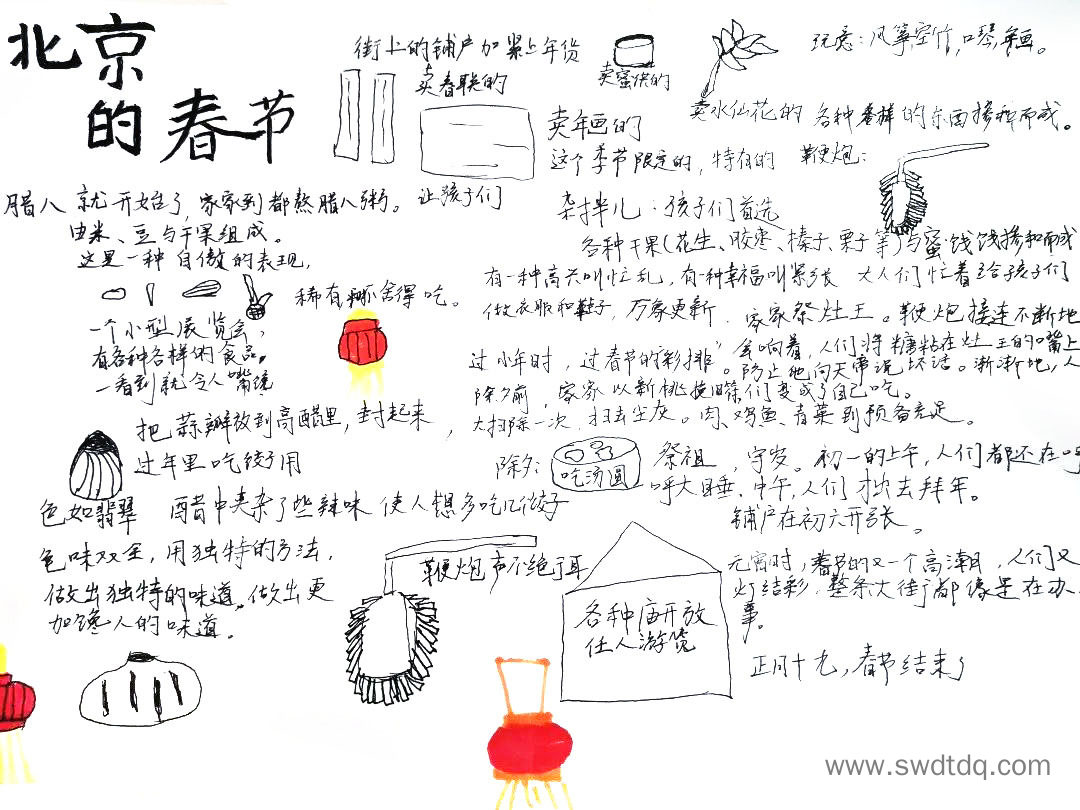 北京
的春节
街上的铺户加紧上年货
卖春联的
卖蜜供的
玩意：风筝空竹，口琴，年画。
卖水仙花的
各种各样的东西掺和而成。
卖年画的
这个季节限定的，特有的
鞭炮：
让孩子们
腊八 就开始了，家家到都熬腊八粥。
由米、豆与干果组成。
这是一种自傲的表现，
稀有 舍得吃。
一个小型展览会，
有各种各样的食品。
一看到就令人嘴馋
把蒜瓣放到高醋里，封起来，
过年里吃饺子用
色如翡翠 醋中夹杂了些辣味 使人想多吃几个饺子
色味双全，用独特的方法，
做出独特的味道。做出更
加馋人的味道。
杂拌儿：孩子们首选
各种干果(花生、胶枣、榛子、栗子等)与蜜饯饯掺和而成
有一种高兴叫忙乱，有一种幸福叫紧张 大人们忙着给孩子们
做衣服和鞋子，万象更新．家家祭灶王。鞭炮接连不断地
过小年时，过春节的彩排” 会响着，人们将糖粘在灶王的嘴上
防止他向天帝说坏话。渐渐地，人
们变成了自己吃。
除夕前，家家以新桃换旧
大扫除一次，扫去尘灰。肉、鸡鱼、青菜到预备充足。
除夕：
吃汤圆
祭祖，守岁。初一的上午，人们都还在呼
呼大睡．中午，人们才出去拜年。
铺户在初六开张。
鞭炮声不绝于耳
各种庙开放
任人游览
元宵时，春节的又一个高潮，人们又
灯结彩，整条大街都像是在办
事。
正月十九，春节结束了
www.swdtdq.com